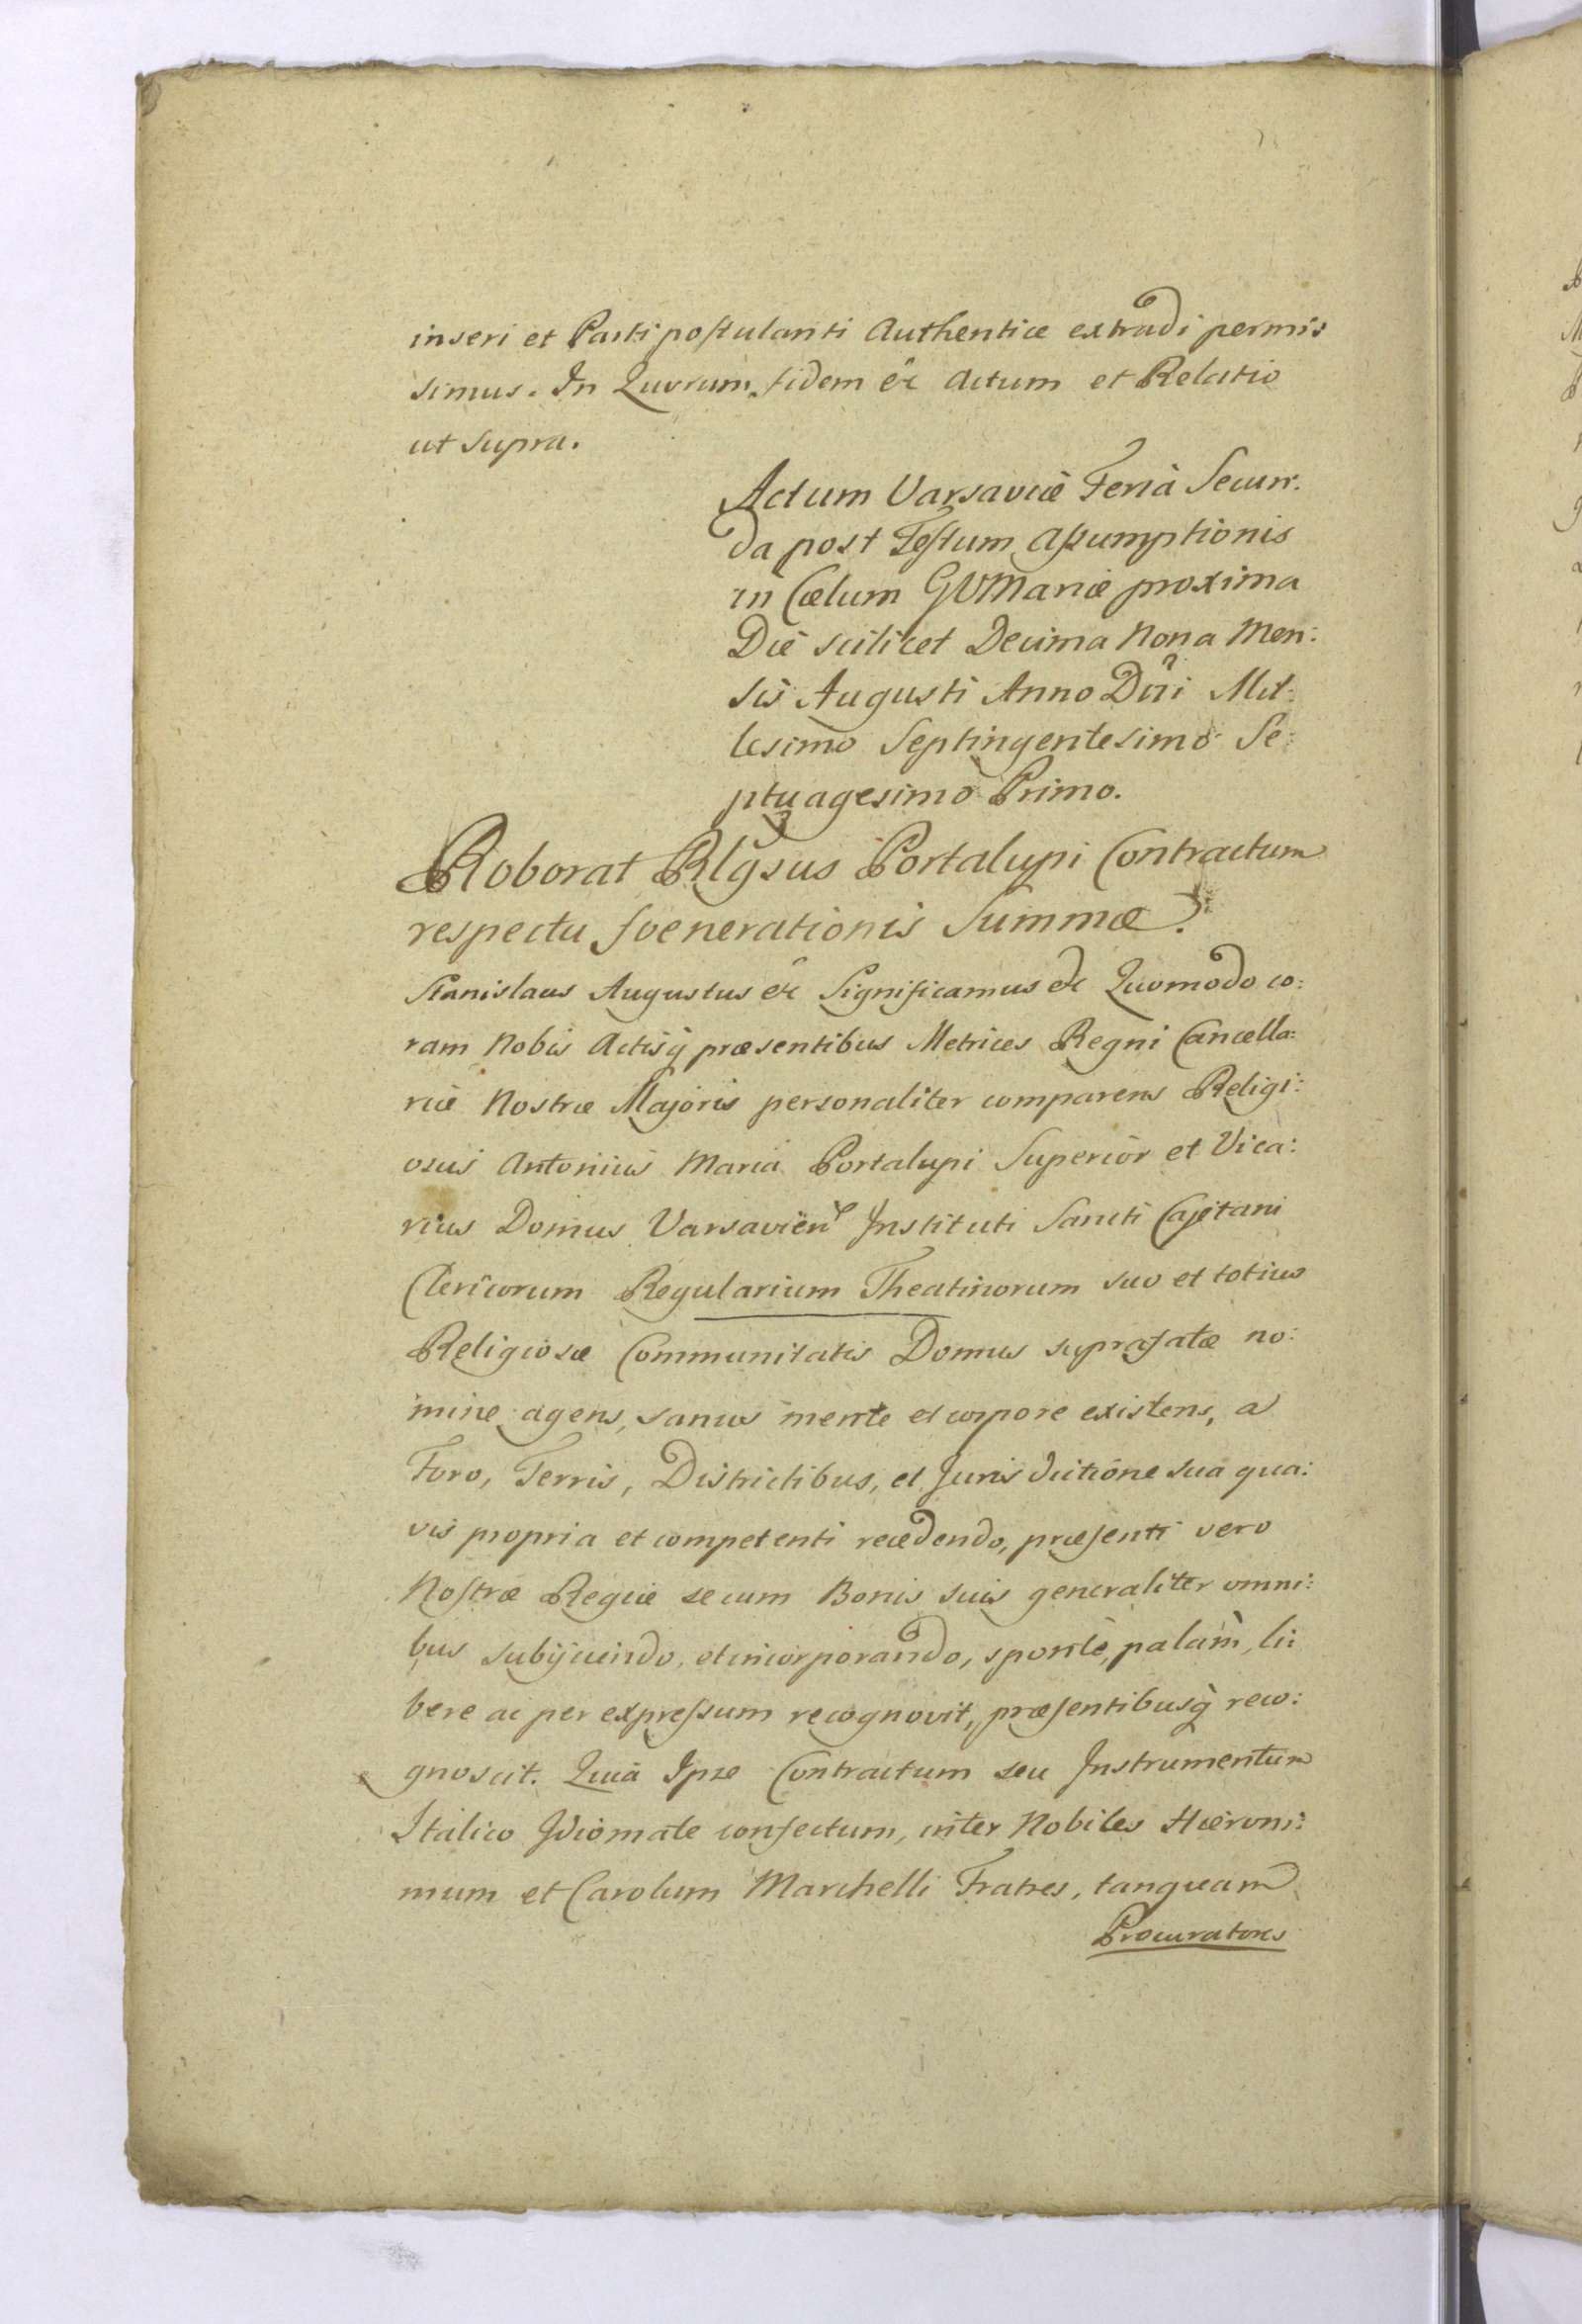 inseri et Parti postulanti Authentice extradi permis
simus. In Quorum fidem &c Actum et Relatio
ut supra.
Actum Varsaviæ Feriâ Secun:
da post Festum Assumptionis
in Cœlum GVMariæ proxima
Die scilicet Decima Nona Men:
sis Augusti Anno Dñi Mil:
lesimo Septingentesimo Se:
ptuagesimo Primo.
Roborat Rlgsus Portalupi Contractum
respectu foenerationis Summæ.
Stanislaus Augustus &c Significamus &c Quomodo co:
ram Nobis Actisq præsentibus Metrices Regni Cancella:
riæ Nostræ Majoris personaliter comparens Religi:
osus Antonius Maria Portalupi Superior et Vica:
rius Domus Varsavien Instituti Sancti Cajetani
Clericorum Regularium Theatinorum suo et totius
Religiosæ Communitatis Domus suprafatæ no:
mine agens, sanus mente et corpore existens, a
Foro, Terris, Districtibus, et Jurisdictione sua qua:
vis propria et competenti recedendo, præsenti vero
Nostræ Regiæ se cum Bonis suis generaliter omni:
bus subijciendo, et incorporando, sponte, palàm, li:
bere ac per expressum recognovit, præsentibusq reco:
gnoscit. Quia Ipse Contractum seu Instrumentum
Italico Idiomate confectum, inter Nobiles Hieroni:
mum et Carolum Marchelli Fratres, tanquam
Procuratores